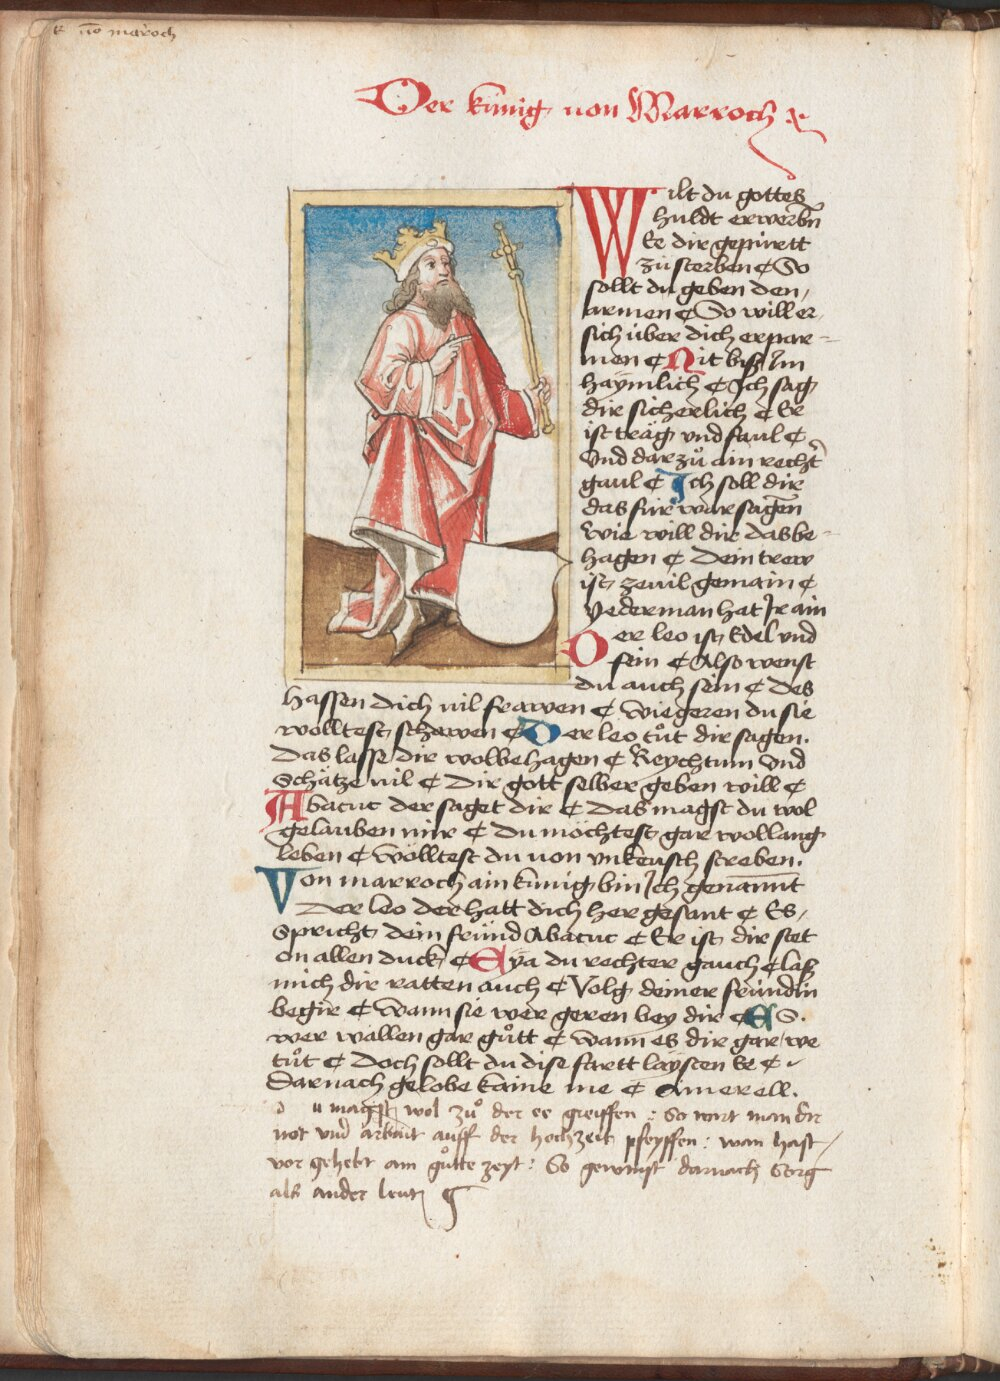 K vō maroch
Der künig von Marroch x
Wilt du gottes
huldt erwerbn̄
Ee dir gepürett
zü sterben ¢ So
sollt du geben den
armen ¢ So will er
sich über dich erpar=
men ¢ Nit biß Im
haymlich ¢ Ich sag
dir sicherlich ¢ Er
ist träg vnd faul ¢
Vnd darzů ain recht
gaul ¢ Ich soll dir
das für war sagen
Wie will dir das be=
hagen ¢ Dein trew
ist zevil gemain ¢
Yederman hat Ir ain
Der leo ist Edel vnd
fein ¢ Also wenst
du auch sein ¢ Des
hassen dich vil frawen ¢ Wie geren du sie
wolltest schawen ¢ Der leo tůt dir sagen.
Das lasse dir wolbehagen ¢ Reychtum Vnd
Schätze vil ¢ Dir gott selber geben will ¢
Abacuc der saget dir ¢ Das magst du wol
gelauben mir ¢ Du möchtest gar wol lang
leben ¢ Wölltest du von vnkeusch streben.
Von marroch ain künig bin Ich genannt
Der leo der hatt dich her gesant ¢ Es
Spricht dein fründ Abacuc ¢ Er ist dir stet
on allen duck ¢ Eya du rechter gauch ¢ laß
mich dir ratten auch ¢ Volg deiner fründin
begir ¢ Wann sie wer geren bey dir ¢ ES.
wer wallen gar gůtt ¢ Wann es dir gar we
tůt ¢ Doch sollt du dise fartt laysten Ee ¢
Darnach gelobe kaine me ¢ Amerell.
du magst wol zů der ee greiffen : So wirt man dir
not vnd arbait auff der hochzeit pfeyffen : wan hast
vor gehebt ain gůtte zeyt : So gewinst darnach Sorg
als ander leut